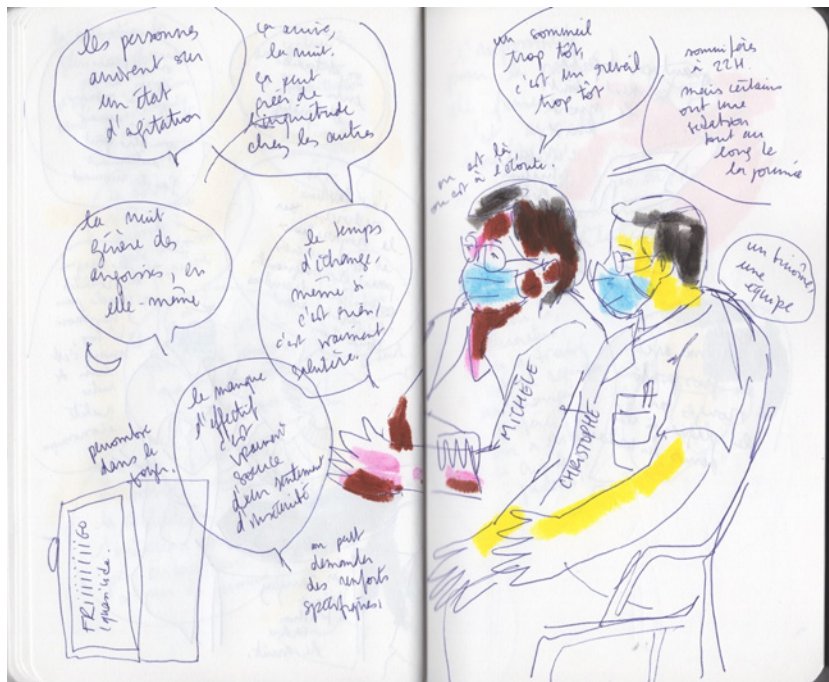 les personnes
arrivent sur
un état
d'agitation
ça arrive,
la nuit.
ça peut
créer de
l'inquiétude
chez les autres
la nuit
génère des
angoisses, en
elle-même
le temps
d'échange,
même si
c'est
c'est vraiment
salutaire.
le manque
d'effectif
c'est
vraiment
source
d'un sentiment
d'insécurité
pénombre
dans le
foyer.
FRIIIIIIIIGO
on peut
demander
des renforts
spécifiques,
un sommeil
trop tôt,
c'est un réveil
trop tôt
somnifères
à 22H.
mais certains
ont une
sédation
tout au
long de
la journée
on est là
on est à l'écoute..
un binôme,
une
équipe
MICHÈLE
CHRISTOPHE